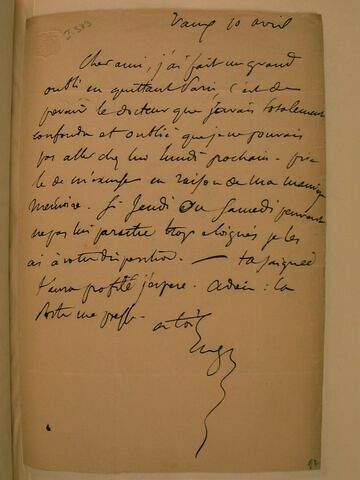 J. 583
10 avril
Cher ami, j'ai fait un grand
oubli en quittant Paris, c'est de
le docteur que j'avais totalement
confondu et oublié que je ne pouvais
pas aller chez lui lundi prochain. prie
le de m'excuser en raison de ma mauvaise
mémoire. Si Jeudi ou Samedi peuvent
ne pas lui paraître trop éloignés je les
ai à votre disposition. — ta saignée
t'aura profité j'espère. adieu : la
poste me presse.
à toi
Eug
92